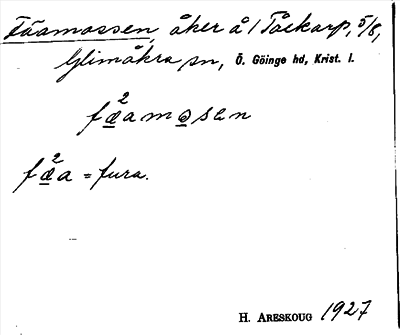 Fäamossen, åker å / Tåckarp, 5/8,
Glimåkra sn, Ö. Göinge hd, Krist. l.
fæ²amosen
fæ²a = fura.
H. ARESKOUG 1927